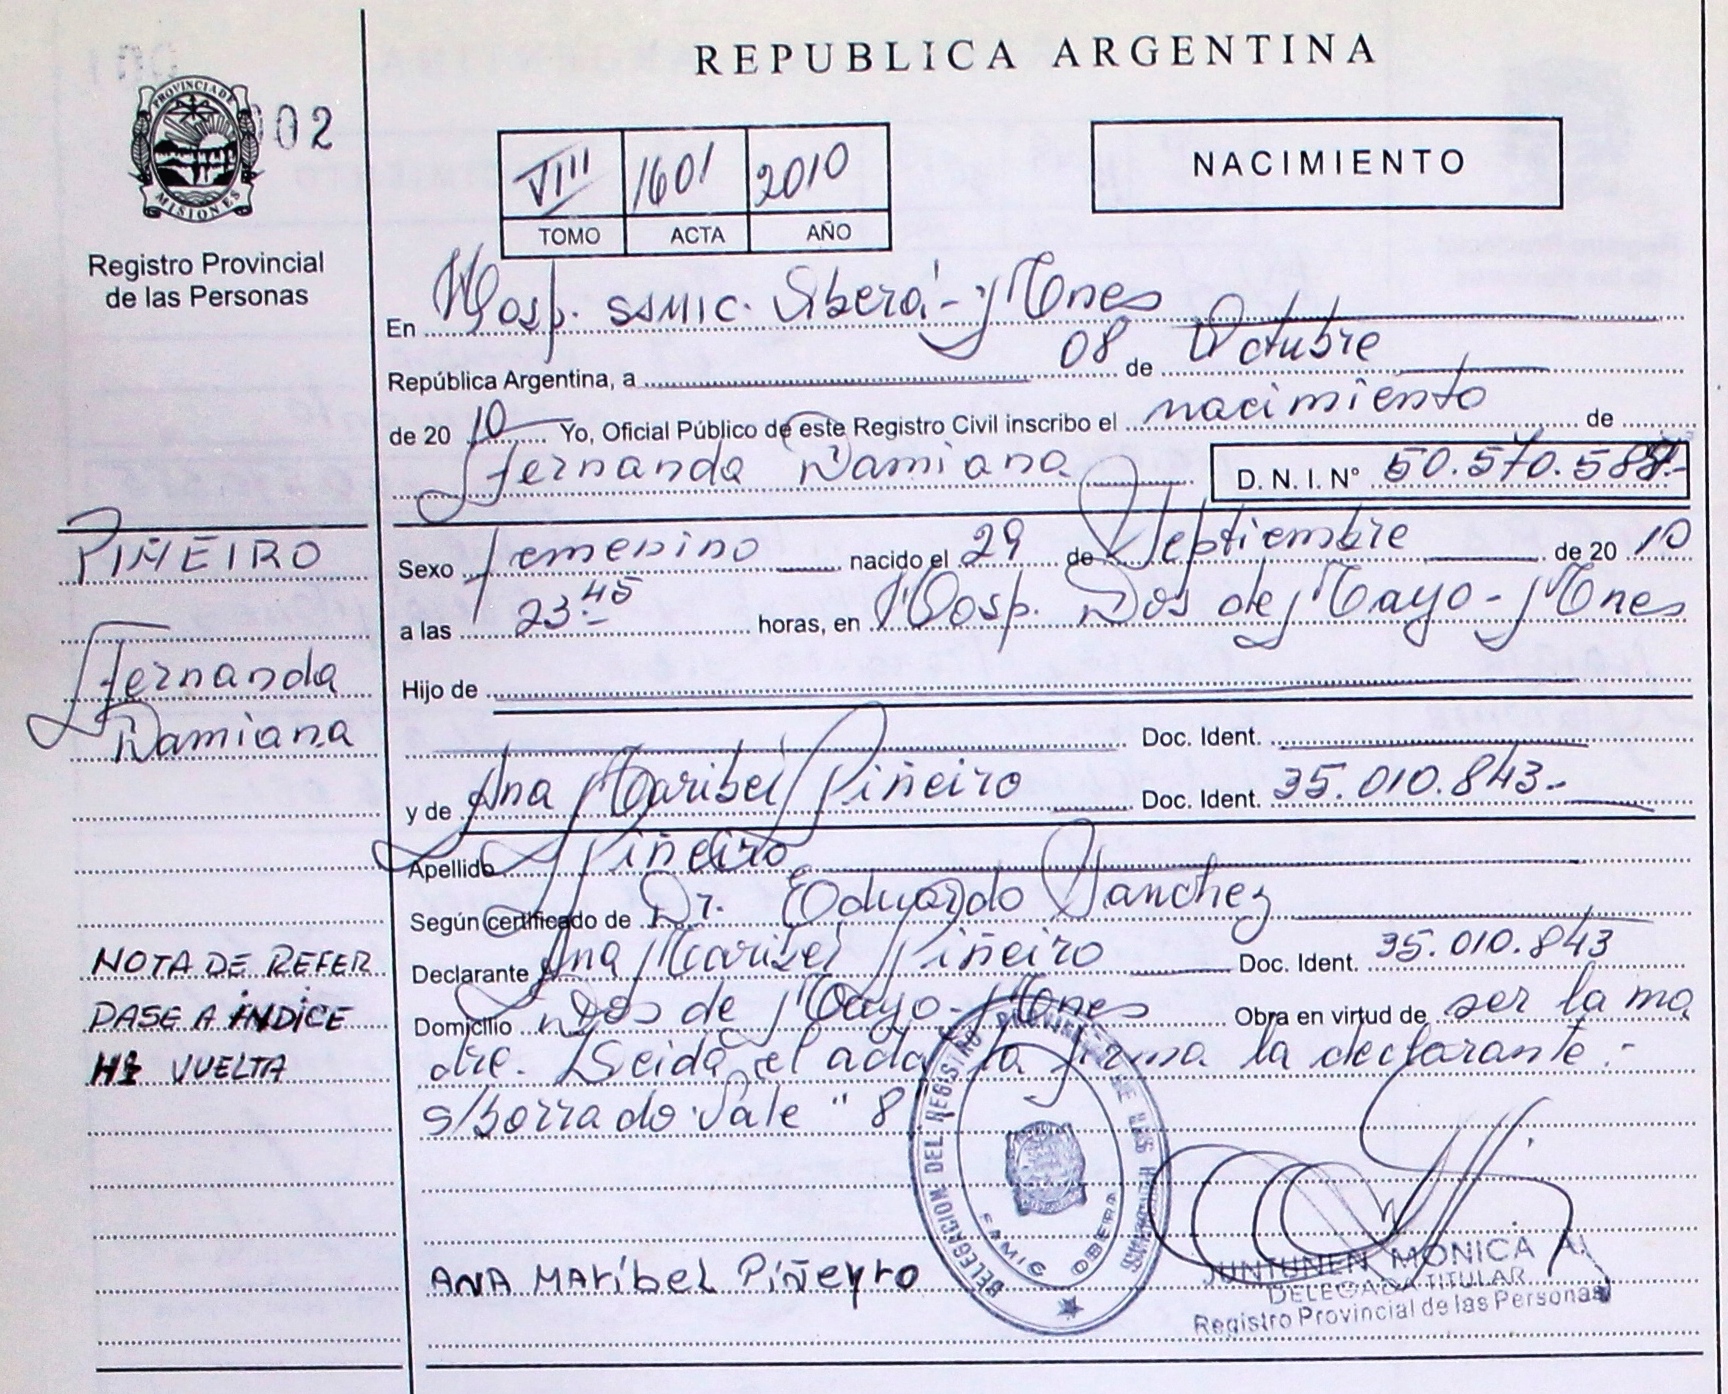 REPUBLICA ARGENTINA
002
PROVINCIA DE MISIONES
Registro Provincial
de las Personas
VIII 1601 2010
TOMO ACTA AÑO
NACIMIENTO
En Hosp. SAMIC. Oberá - Mnes
República Argentina, a 08 de Octubre
de 20 10 Yo, Oficial Público de este Registro Civil inscribo el nacimiento de
Fernanda Damiana D. N. I. Nº 50.570.588.-
PIÑEIRO
Fernanda
Damiana
Sexo femenino nacido el 29 de Septiembre de 20 10
a las 23 45 horas, en Hosp. Dos de Mayo - Mnes
Hijo de
Doc. Ident.
y de Ana Maribel Piñeiro Doc. Ident. 35.010.843.-
Apellido Piñeiro
Según certificado de Dr. Eduardo Sanchez
Declarante Ana Maribel Piñeiro Doc. Ident. 35.010.843
Domicilio Dos de Mayo - Mnes Obra en virtud de ser la ma
dre. Leida el acta la firma la declarante.-
s/borrado Vale "8
NOTA DE REFER
PASE A INDICE
VUELTA
DELEGACION DEL REGISTRO PROVINCIAL DE LAS PERSONAS
SAMIC OBERA
ANA MAríbEL PíÑEyro
JUNTUNEN MONICA A.
DELEGADA TITULAR
Registro Provincial de las Personas